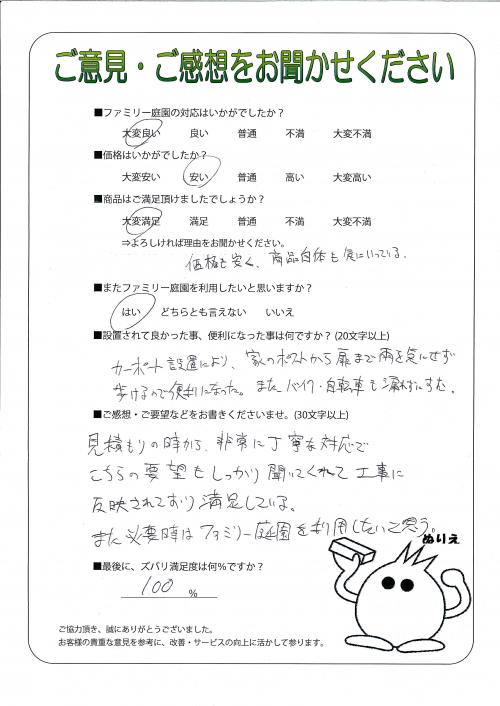 ご意見・ご感想をお聞かせください
■ファミリー庭園の対応はいかがでしたか？
大変良い 良い 普通 不満 大変不満
■価格はいかがでしたか？
大変安い 安い 普通 高い 大変高い
■商品はご満足頂けましたでしょうか？
大変満足 満足 普通 不満 大変不満
⇒よろしければ理由をお聞かせください。
価格も安く、商品自体も気にいっている。
■またファミリー庭園を利用したいと思いますか？
はい どちらとも言えない いいえ
■設置されて良かった事、便利になった事は何ですか？(20文字以上)
カーポート設置により、家のポストから扉まで雨を気にせず
歩けるので便利になった。またバイク・自転車も濡れずにすむ。
■ご感想・ご要望などをお書きくださいませ。(30文字以上)
見積もりの時から、非常に丁寧な対応で
こちらの要望もしっかり聞いてくれて工事に
反映されており満足している。
また必要時はファミリー庭園を利用したいと思う。
ぬりえ
■最後に、ズバリ満足度は何％ですか？
100 %
ご協力頂き、誠にありがとうございました。
お客様の貴重な意見を参考に、改善・サービスの向上に活かして参ります。